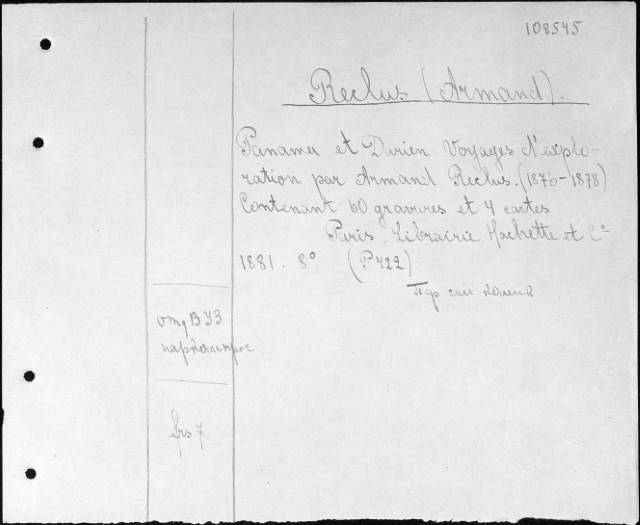 108545
Reclus (Armand).
Panama et Darien. Voyages d'explo-
ration par Armand Reclus. (1876-1878)
Contenant 60 gravures et 4 cartes
Paris. Librairie Hachette et Cie
1881. 8° (P422)
отд ВУЗ
frs 7